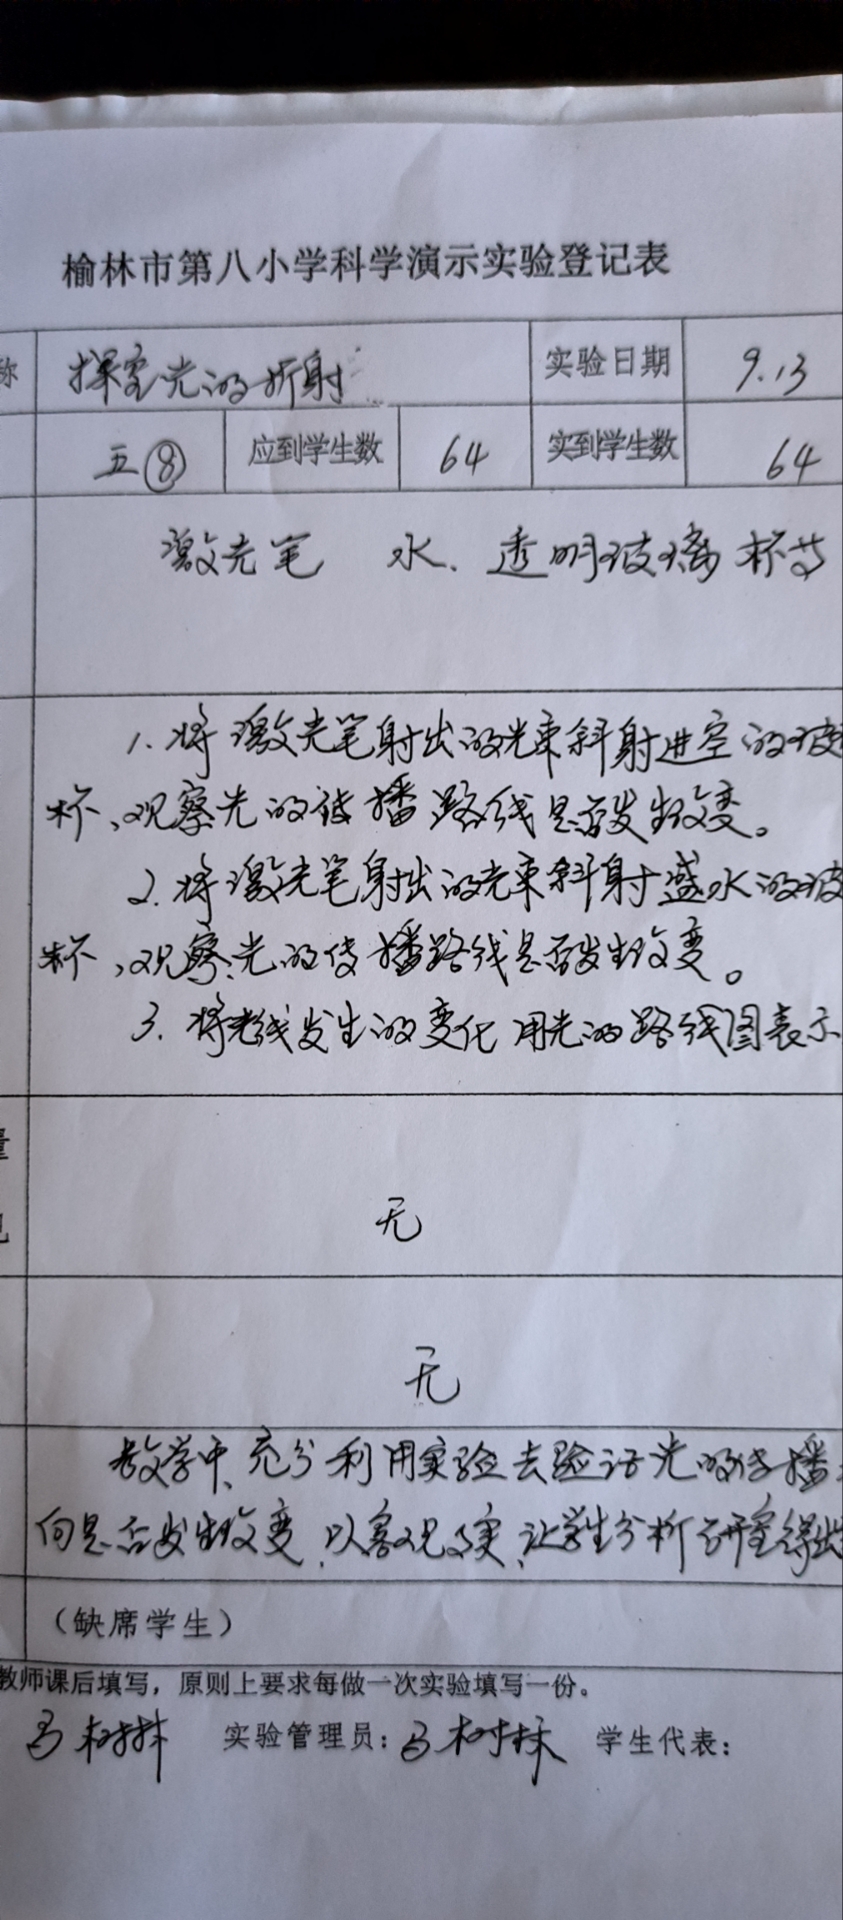 榆林市第八小学科学演示实验登记表
称 探究光的折射 实验日期 9.13
五⑧ 应到学生数 64 实到学生数 64
激光笔 水、透明玻璃杯等
1.将激光笔射出的光束斜射进空的玻
杯、观察光的传播路线是否发生改变。
2.将激光笔射出的光束斜射盛水的玻
杯,观察光的传播路线是否发生改变。
3.将光线发生的变化用光的路线图表示
量
无
无
教学中、充分利用实验去验证光的传播
向是否发生改变、以客观事实、让学生分析研究得出
(缺席学生)
教师课后填写,原则上要求每做一次实验填写一份。
马树林 实验管理员:马树林 学生代表: